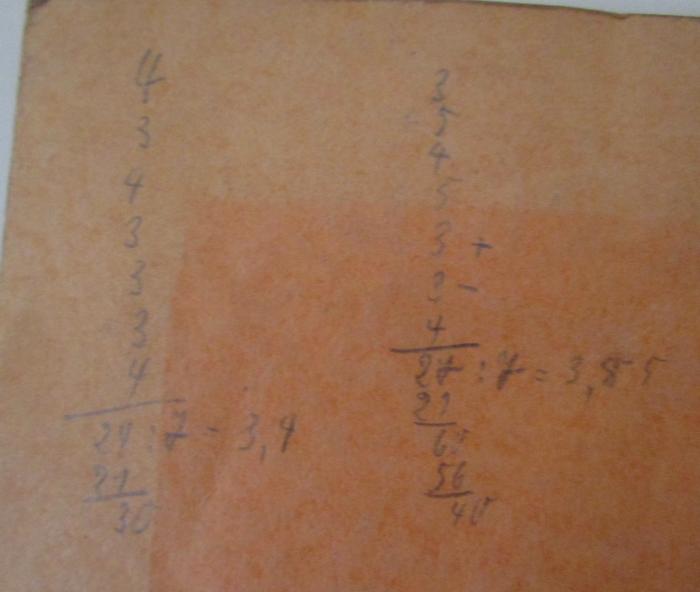 4
3
4
3
3
3
4
24 : 7 = 3,4
21
30
3
5
4
5
3 +
3 -
4
27 : 7 = 3,85
21
60
56
40